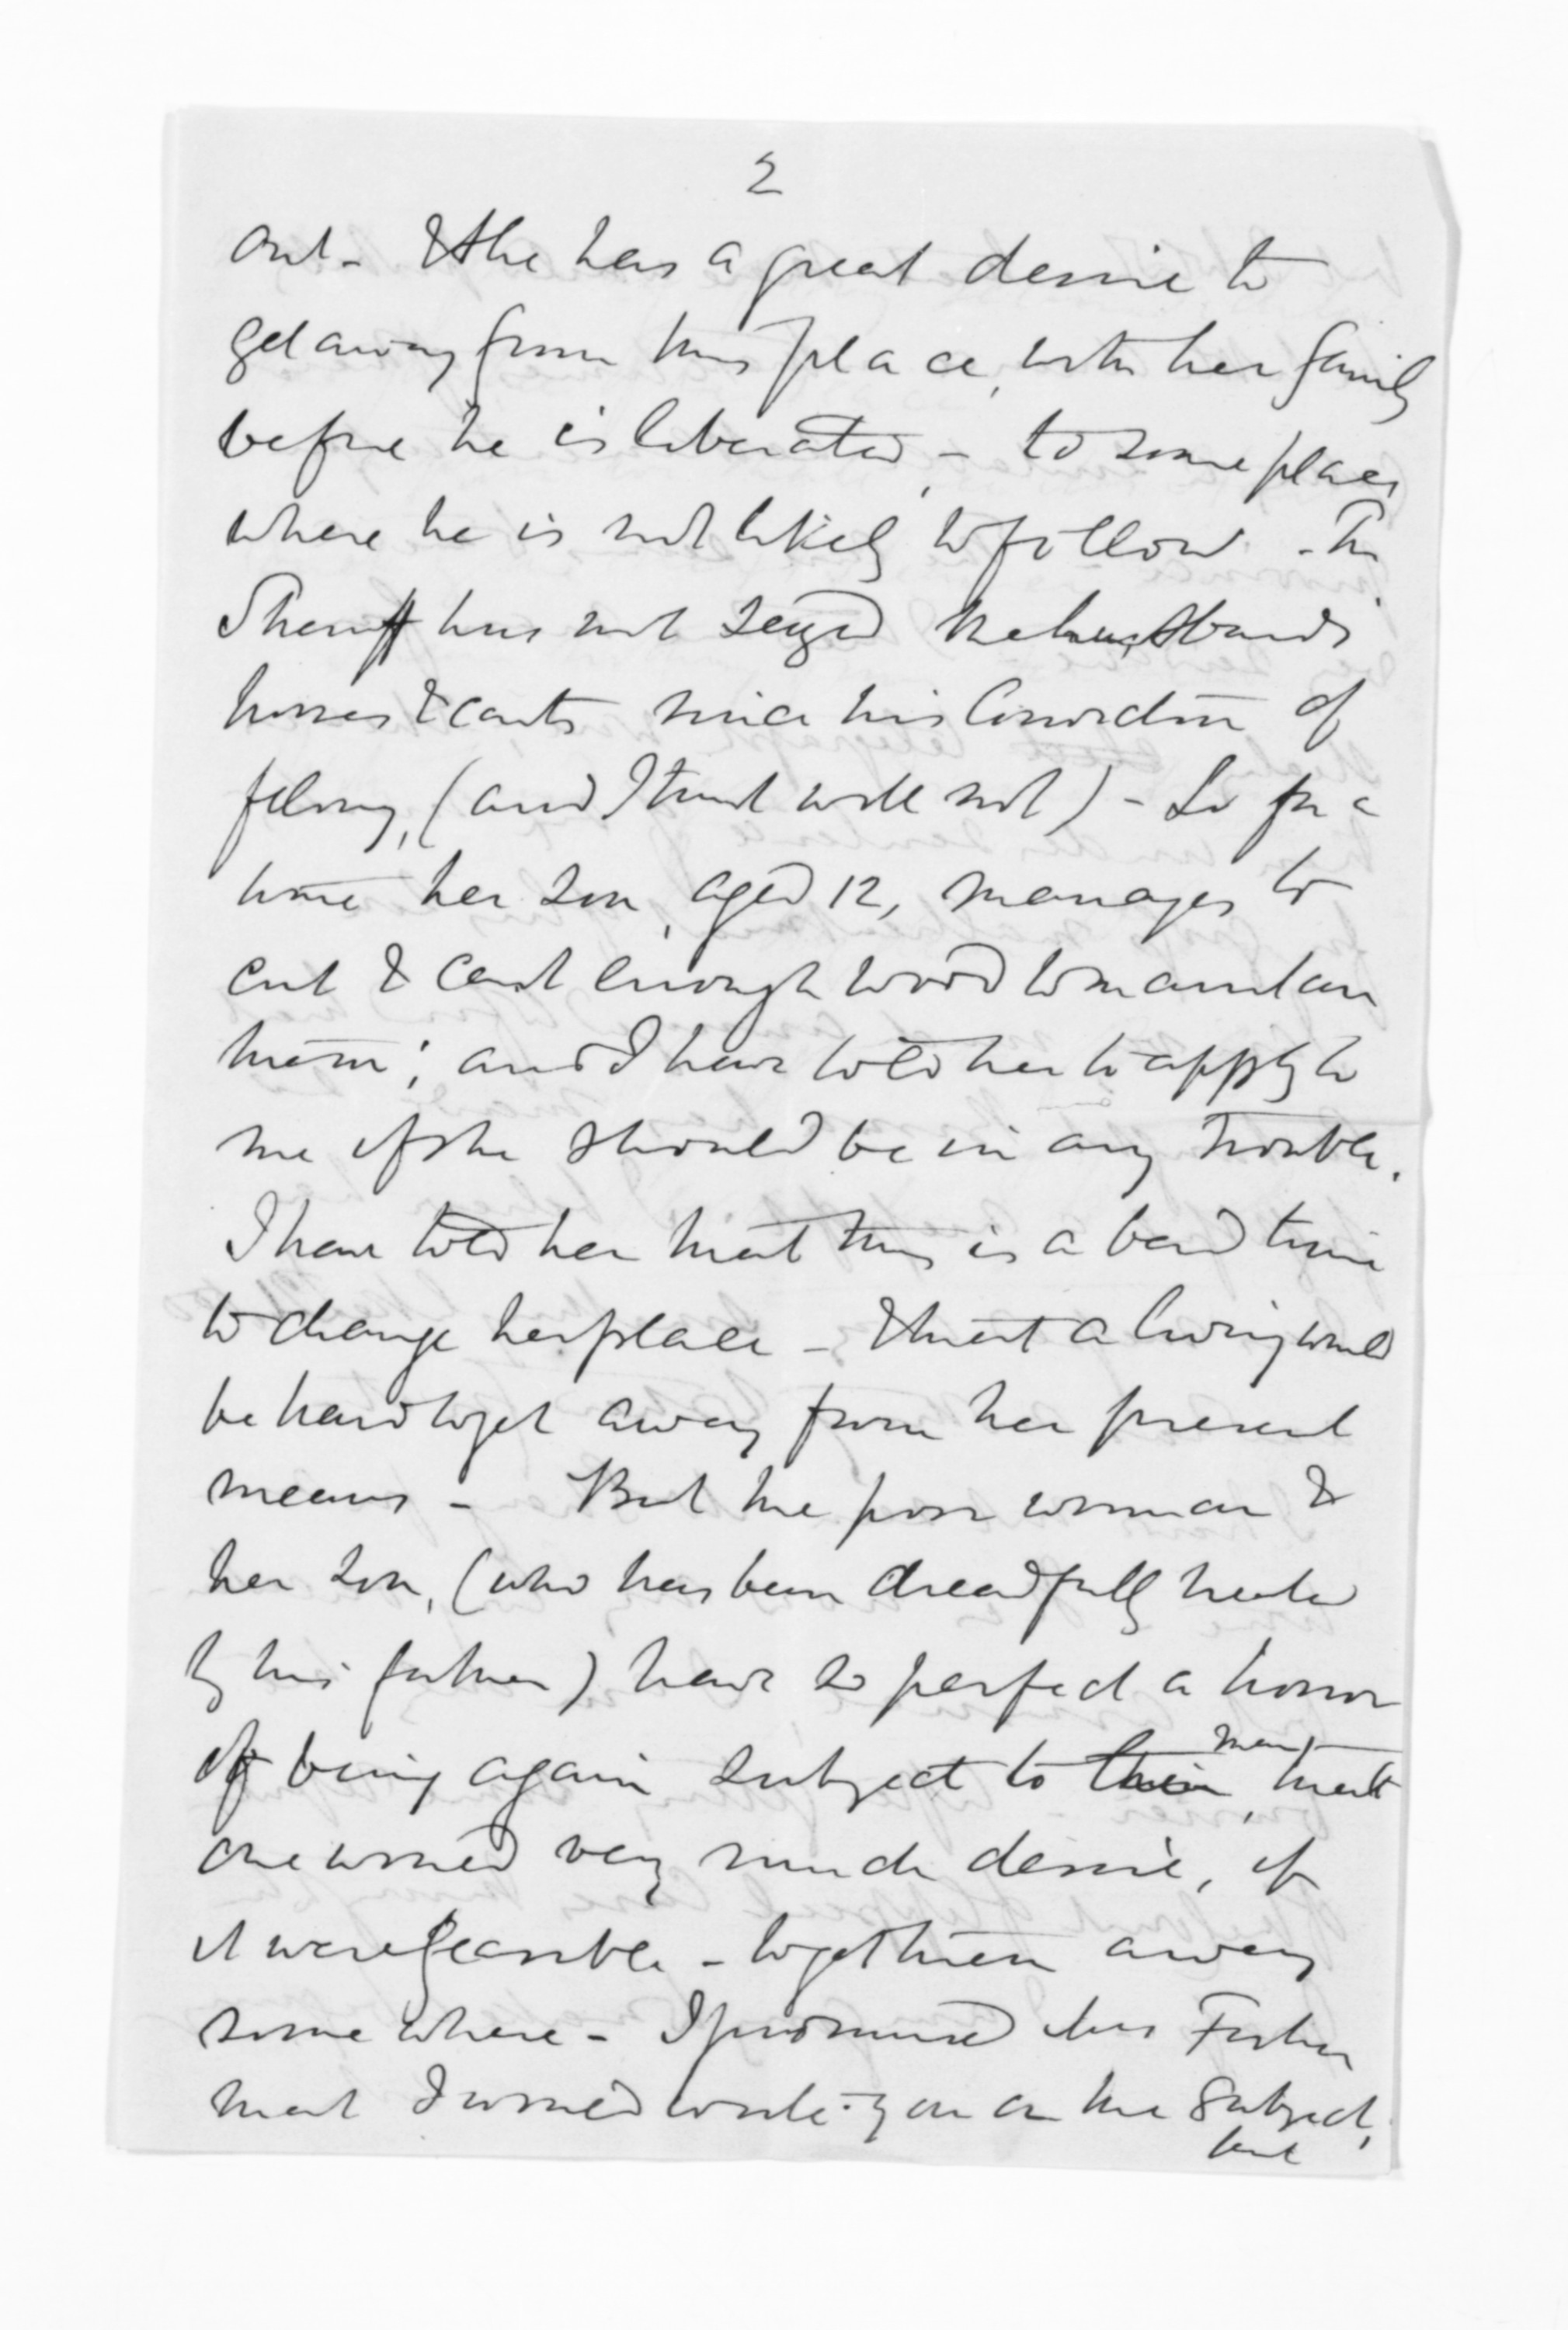 2
out - & she has a great desire to
get away from this place, with her family
before he is liberated, - to some place,
where he is not likely to follow. - The
Sheriff has not seized the husband's
horses & carts since his Conviction of
felony, (and I trust will not) - So for a
time her son, aged 12, manages to
cut & cart enough wood to maintain
them; and I have told her to apply to
me if she should be in any trouble.
I have told her that this is a bad time
to change her place - & that a living would
be hard to get away from her present
means - But the poor woman &
her son, (who has been dreadfully treated
by his father) have so perfect a horror
of being again subject to this man, that
one would very much desire, if
it were feasible - to get them away
some where - I promised her Father
that I would write you on the subject,
but